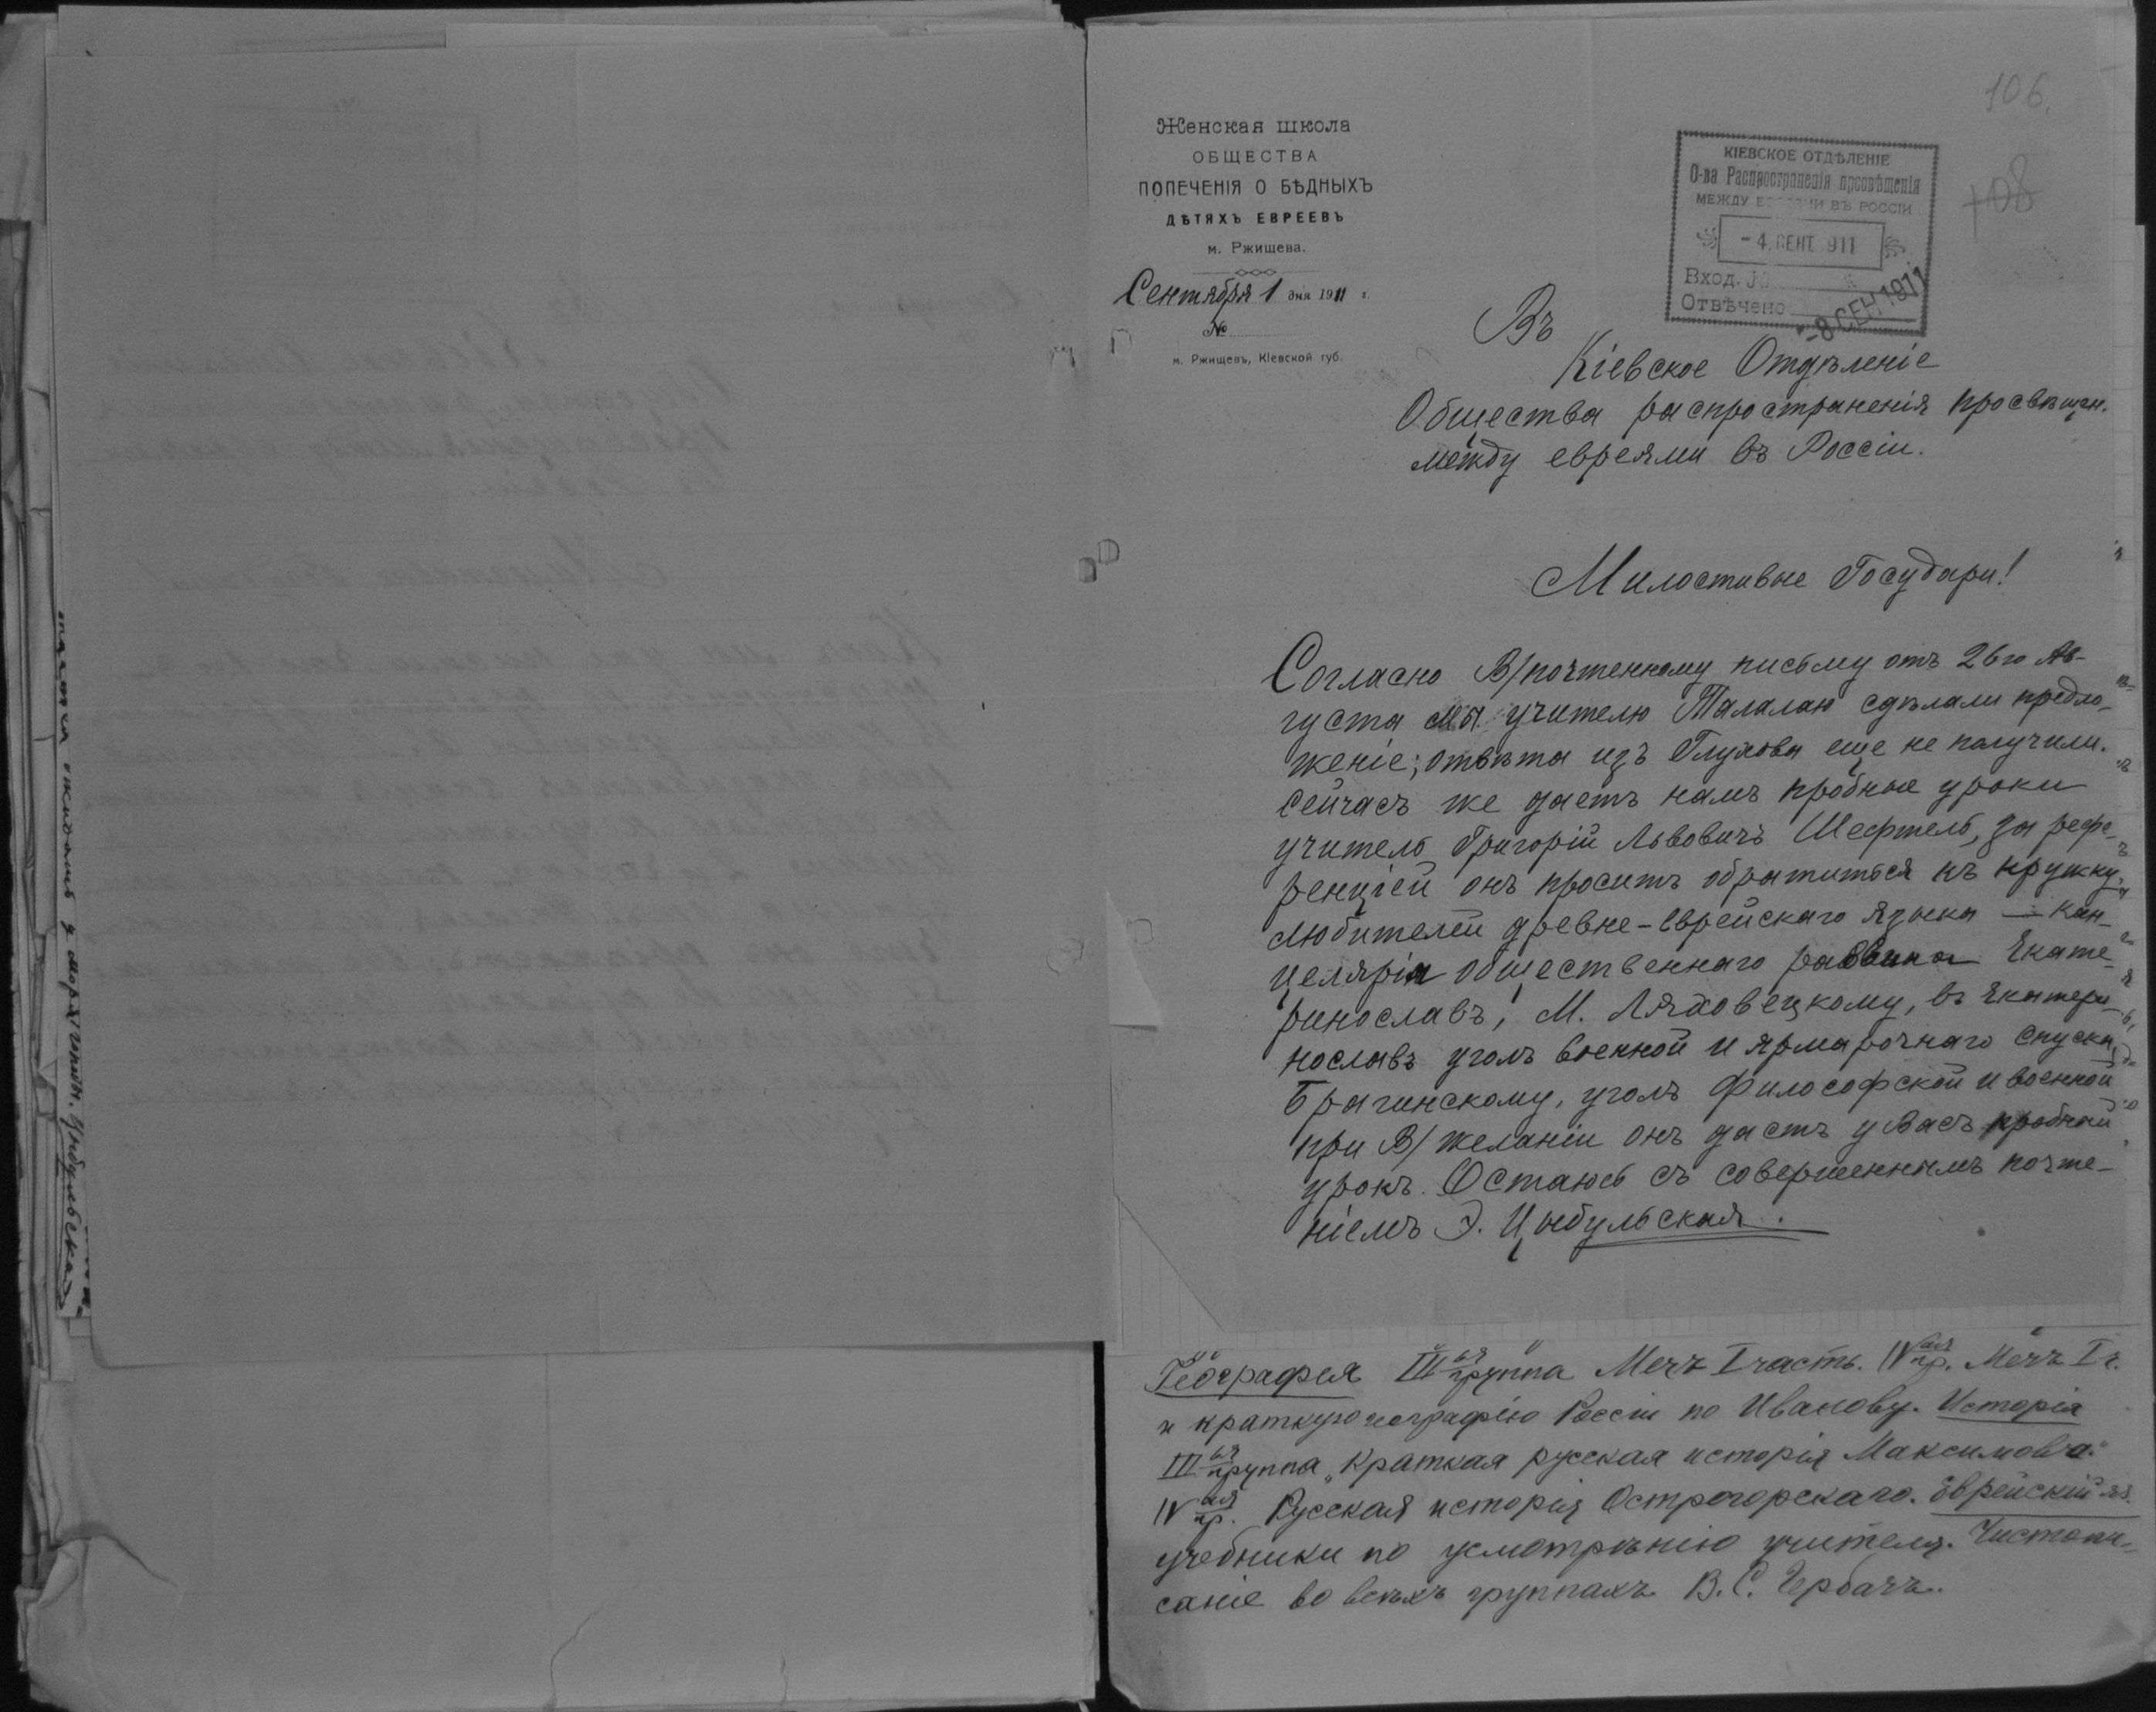 106.
108
Женская школа
ОБЩЕСТВА
ПОПЕЧЕНІЯ О БѢДНЫХЪ
ДѢТЯХЪ ЕВРЕЕВЪ
м. Ржищева.
Сентября 1 дня 1911 г.
№
м. Ржищевъ, Кіевской губ.
КІЕВСКОЕ ОТДѢЛЕНІЕ
О-ва Распространенія просвѣщенія
МЕЖДУ ЕВРЕЯМИ ВЪ РОССІИ
- 4. СЕНТ. 911
Вход. №
Отвѣчено
- 8 СЕН 1911
Въ
Кіевское Отдѣленіе
Общества распространенія просвѣщен.
между евреями въ Россіи.
Милостивые Государи!
Согласно В/почтенному письму отъ 26го Ав-
густа мы учителю Талалаю сдѣлали предло-
женіе; отвѣта изъ Глухова еще не получили.
Сейчасъ же даетъ намъ пробные уроки
учитель Григорій Львовичъ Шефтель, за рефе-
ренціей онъ проситъ обратиться къ кружку
любителей древне-еврейскаго языка — Кан-
целярія общественнаго раввина Екате-
ринославъ, М. Ляховецкому, въ Екатери-
нославъ уголъ военной и ярмарочнаго спуска,
Брагинскому, уголъ Философской и военной
при В/ желаніи онъ дастъ у Васъ пробный
урокъ. Остаюсь съ совершеннымъ почте-
ніемъ Э. Цыбульская.
Географія III ья группа Мечъ I часть. IV ая гр. Мечъ I ч.
и краткую географію Россіи по Иванову. Исторія
III ья группа „Краткая русская исторія Максимова."
IV ая гр. Русская исторія Острогорскаго. Еврейскій яз.
учебники по усмотрѣнію учителя. Чистопи-
саніе во всѣхъ группахъ В. С. Гербачъ.